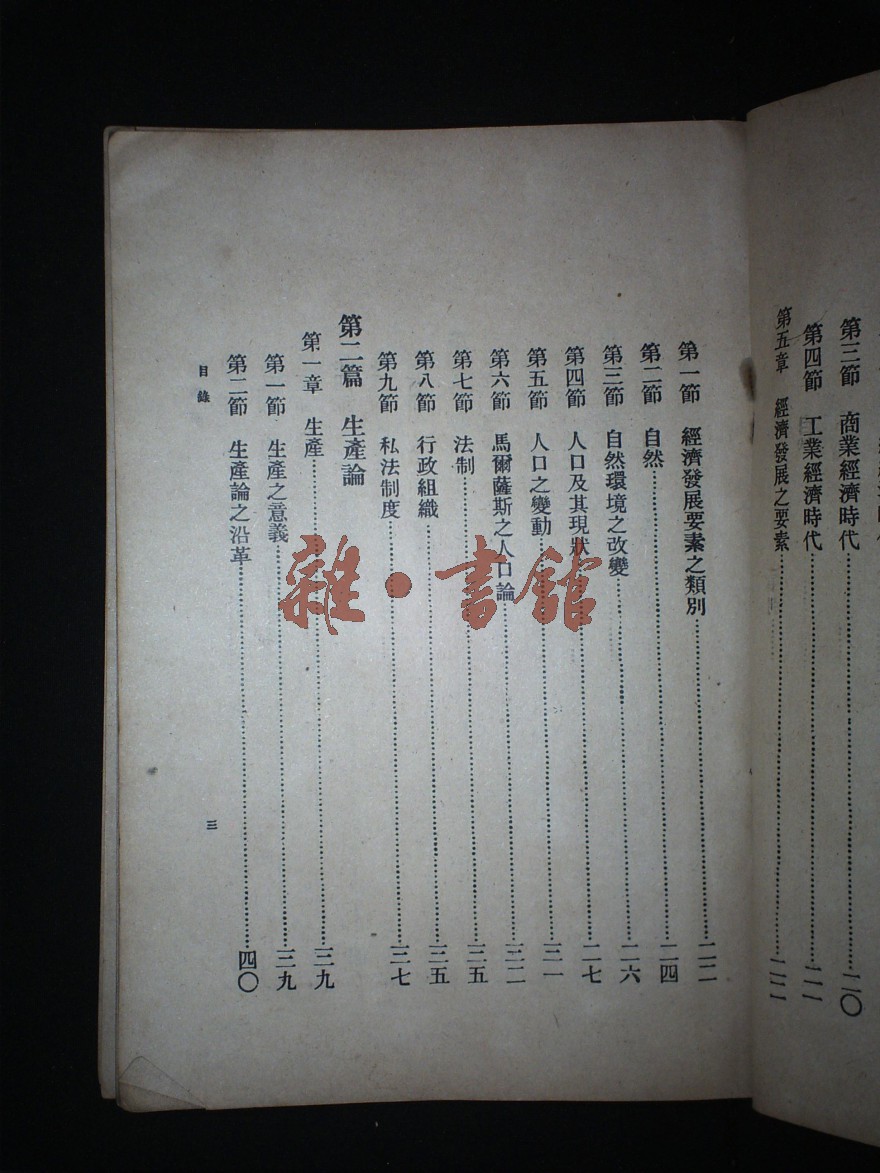 第三節 商業經濟時代……二〇
第四節 工業經濟時代……二一
第五章 經濟發展之要素……二二
第一節 經濟發展要素之類別……二二
第二節 自然……二四
第三節 自然環境之改變……二六
第四節 人口及其現狀……二七
第五節 人口之變動……三一
第六節 馬爾薩斯之人口論……三二
第七節 法制……三五
第八節 行政組織……三五
第九節 私法制度……三七
第二篇 生產論
第一章 生產……三九
第一節 生產之意義……三九
第二節 生產論之沿革……四〇
目錄
三
雜·書館